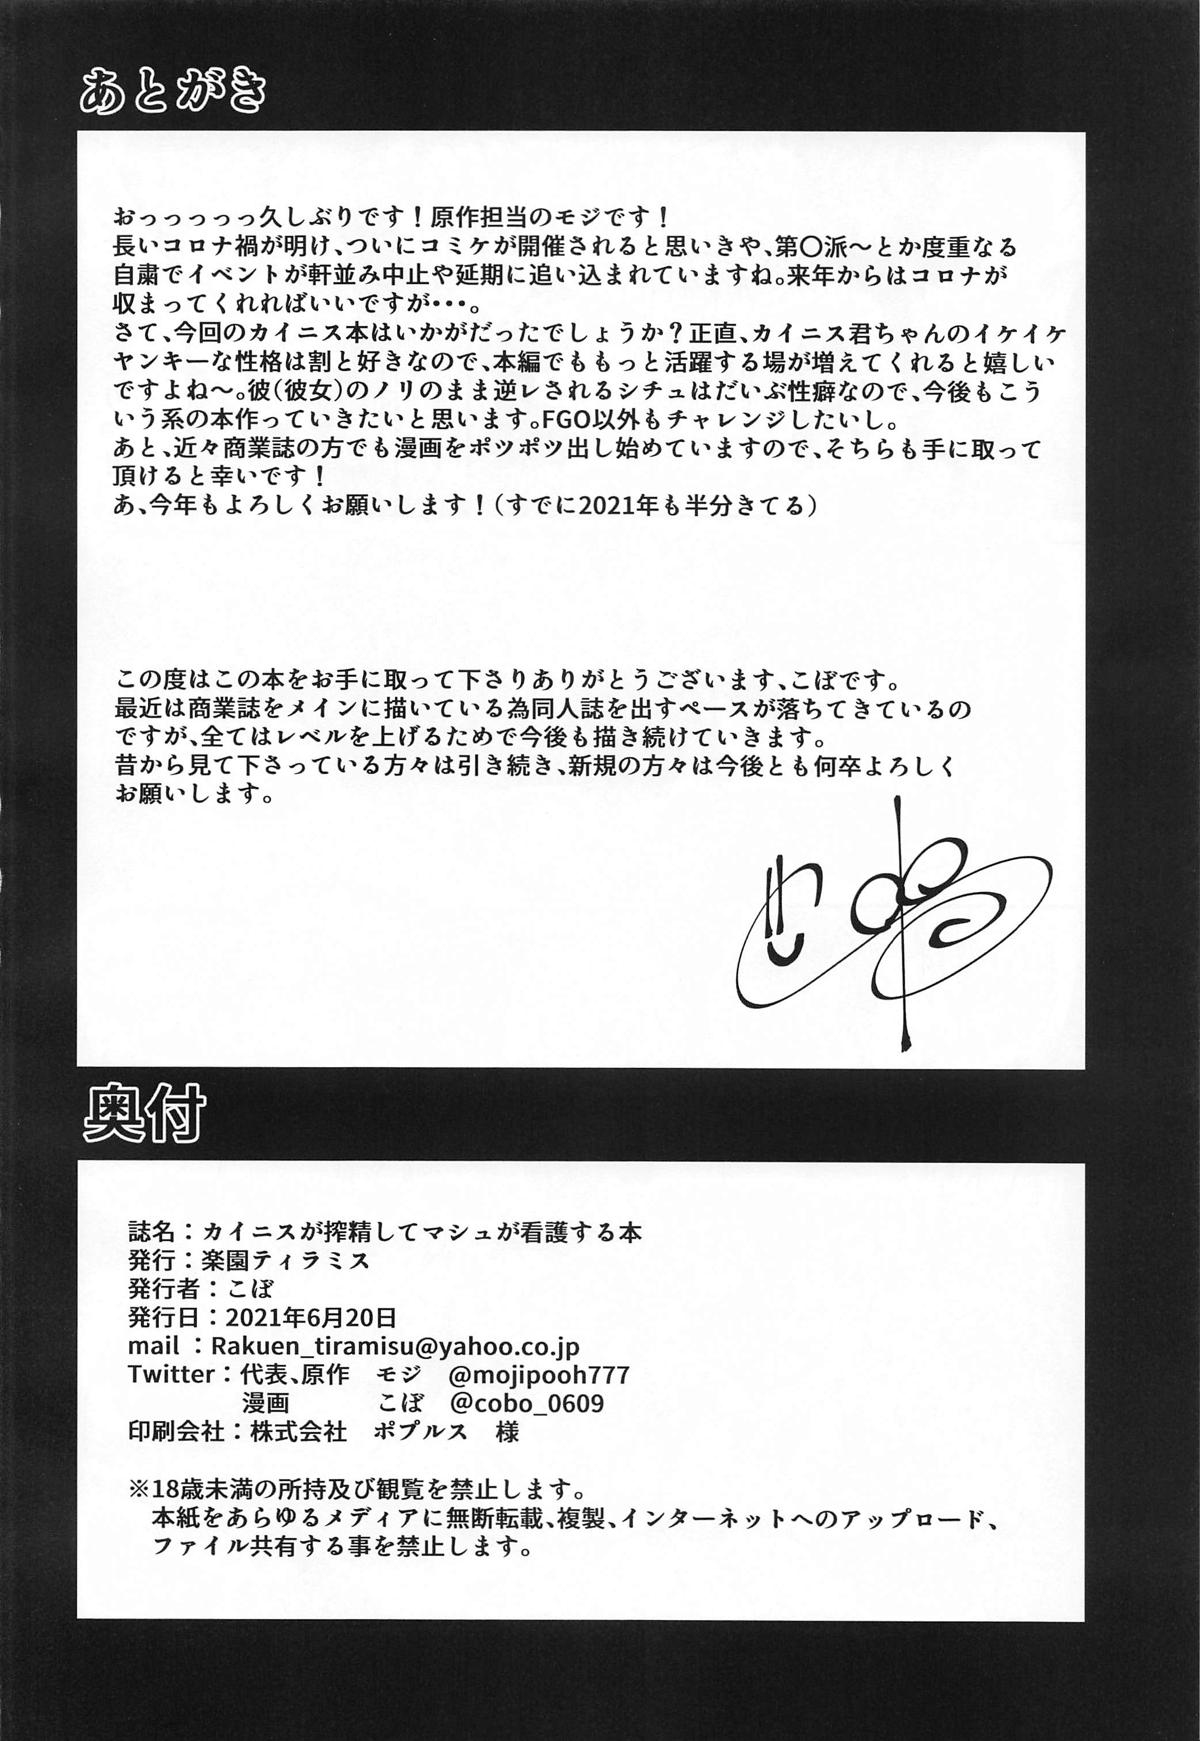 あとがき
おっっっっっ久しぶりです！原作担当のモジです！
長いコロナ禍が明け、ついにコミケが開催されると思いきや、第〇派～とか度重なる
自粛でイベントが軒並み中止や延期に追い込まれていますね。来年からはコロナが
収まってくれればいいですが・・・。
さて、今回のカイニス本はいかがだったでしょうか？正直、カイニス君ちゃんのイケイケ
ヤンキーな性格は割と好きなので、本編でももっと活躍する場が増えてくれると嬉しい
ですよね～。彼（彼女）のノリのまま逆レされるシチュはだいぶ性癖なので、今後もこう
いう系の本作っていきたいと思います。FGO以外もチャレンジしたいし。
あと、近々商業誌の方でも漫画をポツポツ出し始めていますので、そちらも手に取って
頂けると幸いです！
あ、今年もよろしくお願いします！（すでに2021年も半分きてる）
この度はこの本をお手に取って下さりありがとうございます、こぼです。
最近は商業誌をメインに描いている為同人誌を出すペースが落ちてきているの
ですが、全てはレベルを上げるためで今後も描き続けていきます。
昔から見て下さっている方々は引き続き、新規の方々は今後とも何卒よろしく
お願いします。
奥付
誌名：カイニスが搾精してマシュが看護する本
発行：楽園ティラミス
発行者：こぼ
発行日：2021年6月20日
mail ：Rakuen_tiramisu@yahoo.co.jp
Twitter：代表、原作　モジ　@mojipooh777
漫画　こぼ　@cobo_0609
印刷会社：株式会社　ポプルス　様
※18歳未満の所持及び観覧を禁止します。
本紙をあらゆるメディアに無断転載、複製、インターネットへのアップロード、
ファイル共有する事を禁止します。